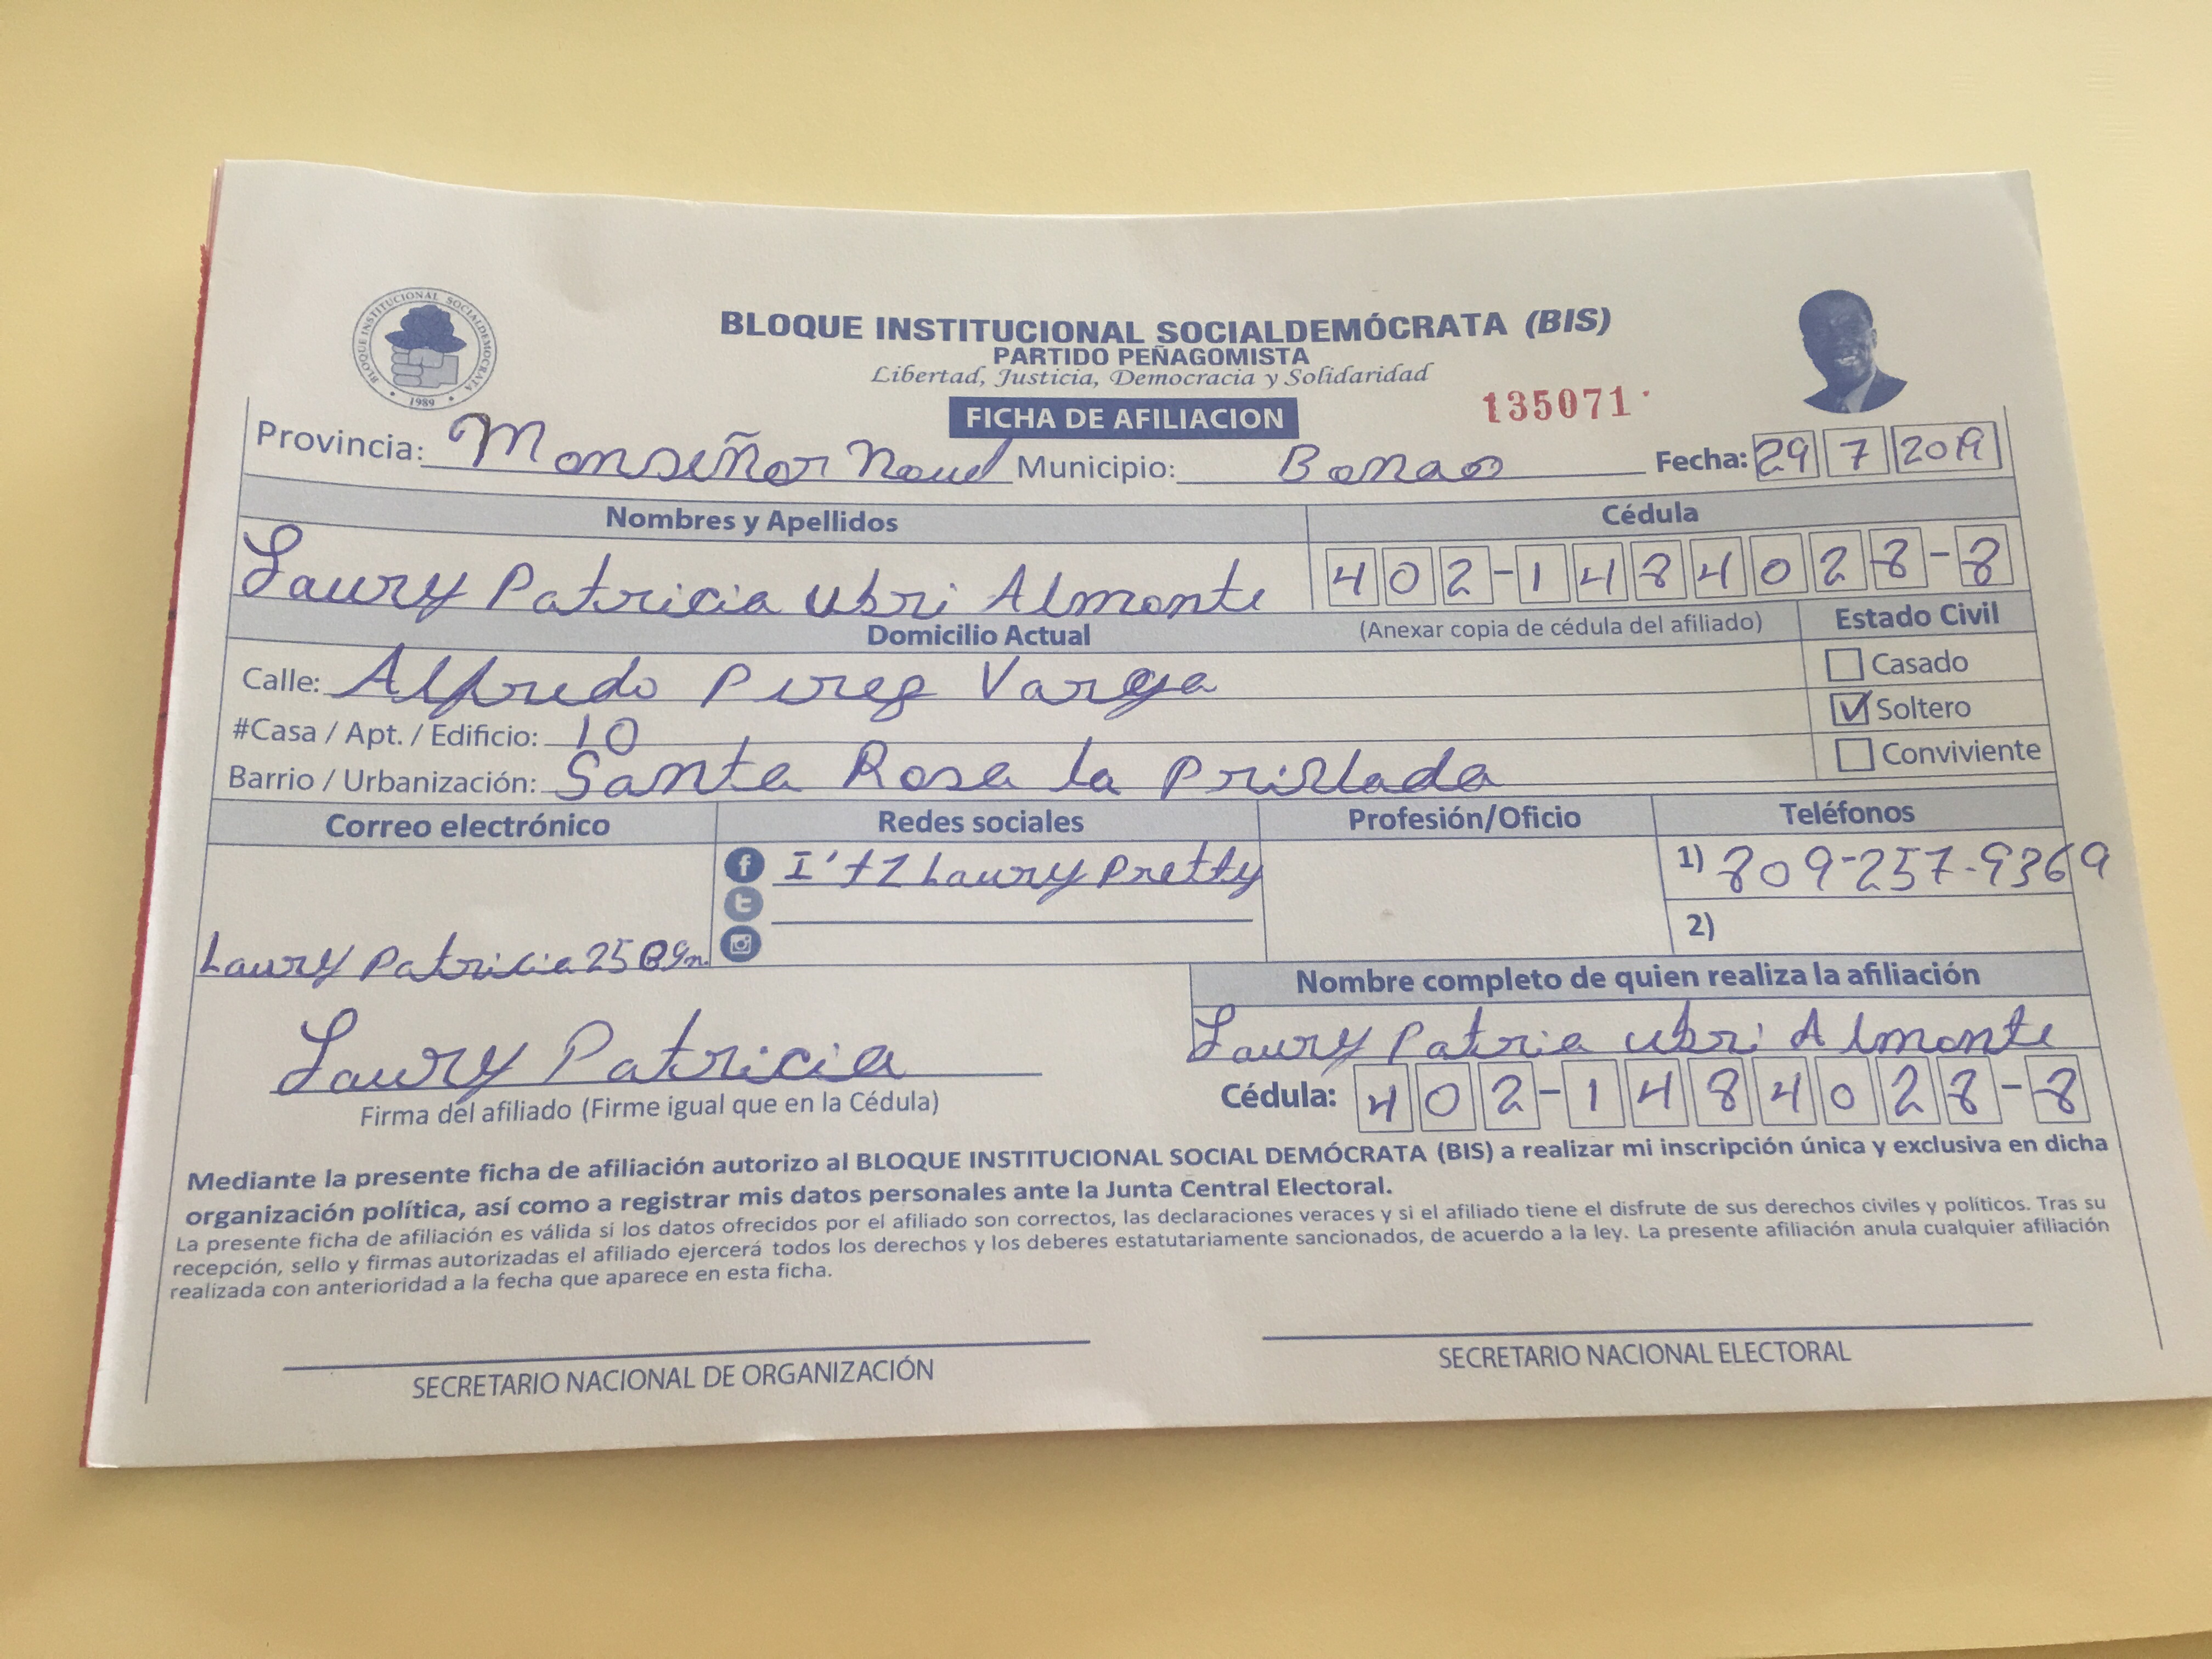 BLOQUE INSTITUCIONAL SOCIALDEMOCRATA
1989
BLOQUE INSTITUCIONAL SOCIALDEMÓCRATA (BIS)
PARTIDO PEÑAGOMISTA
Libertad, Justicia, Democracia y Solidaridad
FICHA DE AFILIACION
135071
Provincia: Monseñor Nouel Municipio: Bonao Fecha: 29 7 2019
Nombres y Apellidos Cédula
Laury Patricia Ubri Almonte 402-1484028-8
Domicilio Actual (Anexar copia de cédula del afiliado) Estado Civil
Calle: Alfredo Pirez Varga Casado
#Casa / Apt. / Edificio: 10 Soltero
Barrio / Urbanización: Santa Rosa la Conviviente
Correo electrónico Redes sociales Profesión/Oficio Teléfonos
I'tz Laury Pretty 1) 809-257-9369
2)
Laury Patricia25@gm.
Nombre completo de quien realiza la afiliación
Laury Patricia Laury Patria Ubri Almonte
Firma del afiliado (Firme igual que en la Cédula) Cédula: 402-1484028-8
Mediante la presente ficha de afiliación autorizo al BLOQUE INSTITUCIONAL SOCIAL DEMÓCRATA (BIS) a realizar mi inscripción única y exclusiva en dicha
organización política, así como a registrar mis datos personales ante la Junta Central Electoral.
La presente ficha de afiliación es válida si los datos ofrecidos por el afiliado son correctos, las declaraciones veraces y si el afiliado tiene el disfrute de sus derechos civiles y políticos. Tras su
recepción, sello y firmas autorizadas el afiliado ejercerá todos los derechos y los deberes estatutariamente sancionados, de acuerdo a la ley. La presente afiliación anula cualquier afiliación
realizada con anterioridad a la fecha que aparece en esta ficha.
SECRETARIO NACIONAL DE ORGANIZACIÓN SECRETARIO NACIONAL ELECTORAL